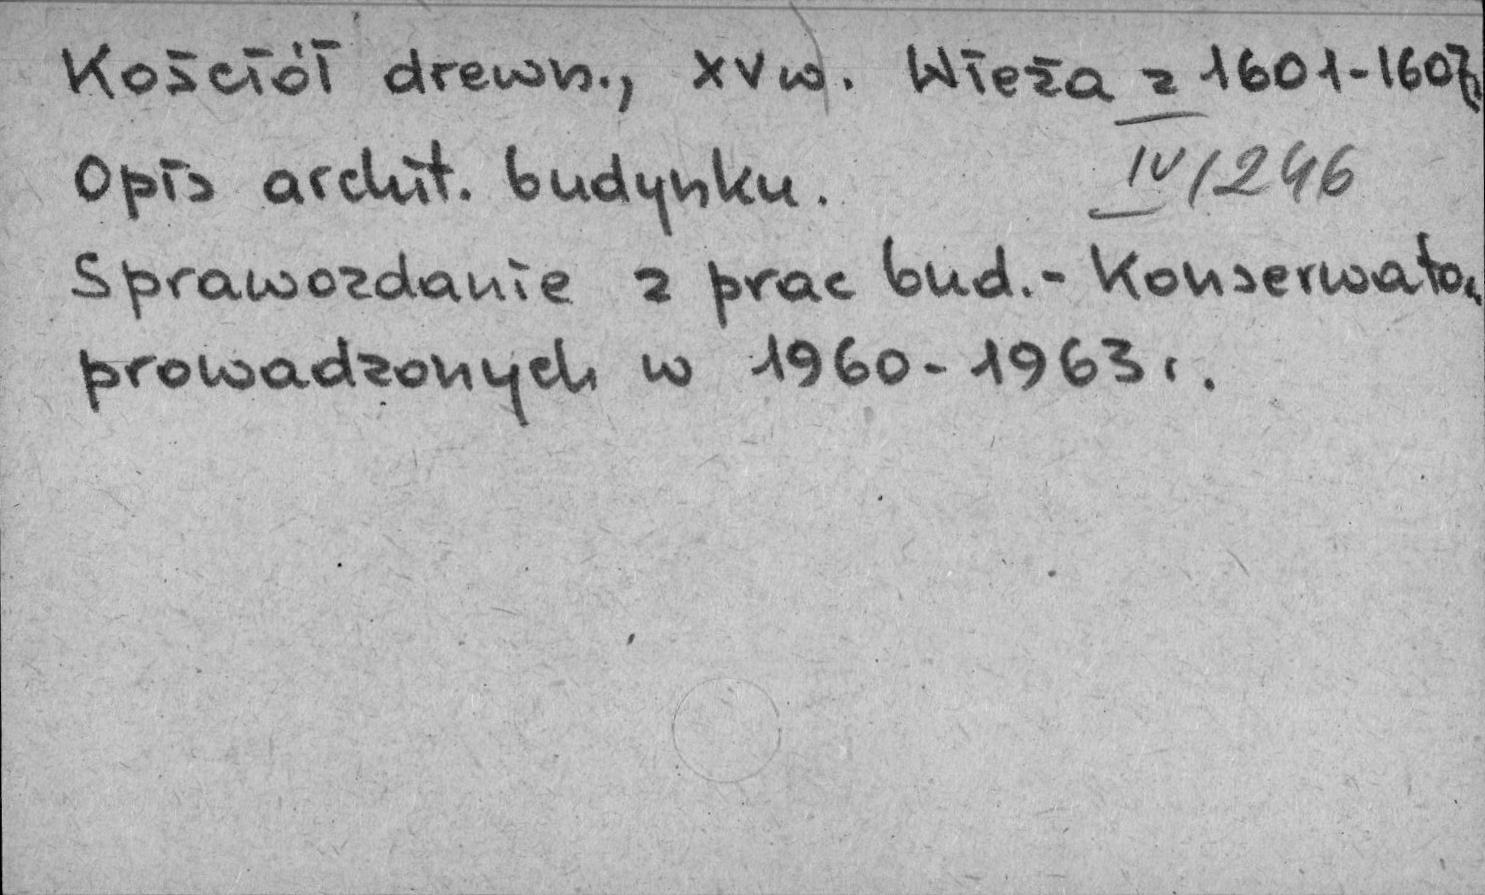 Kościół drewn., XV w. Wieża z 1601-1607
Opis archit. budynku.
IV/246
Sprawozdanie z prac bud.-Konserwator.
prowadzonych w 1960-1963 r.